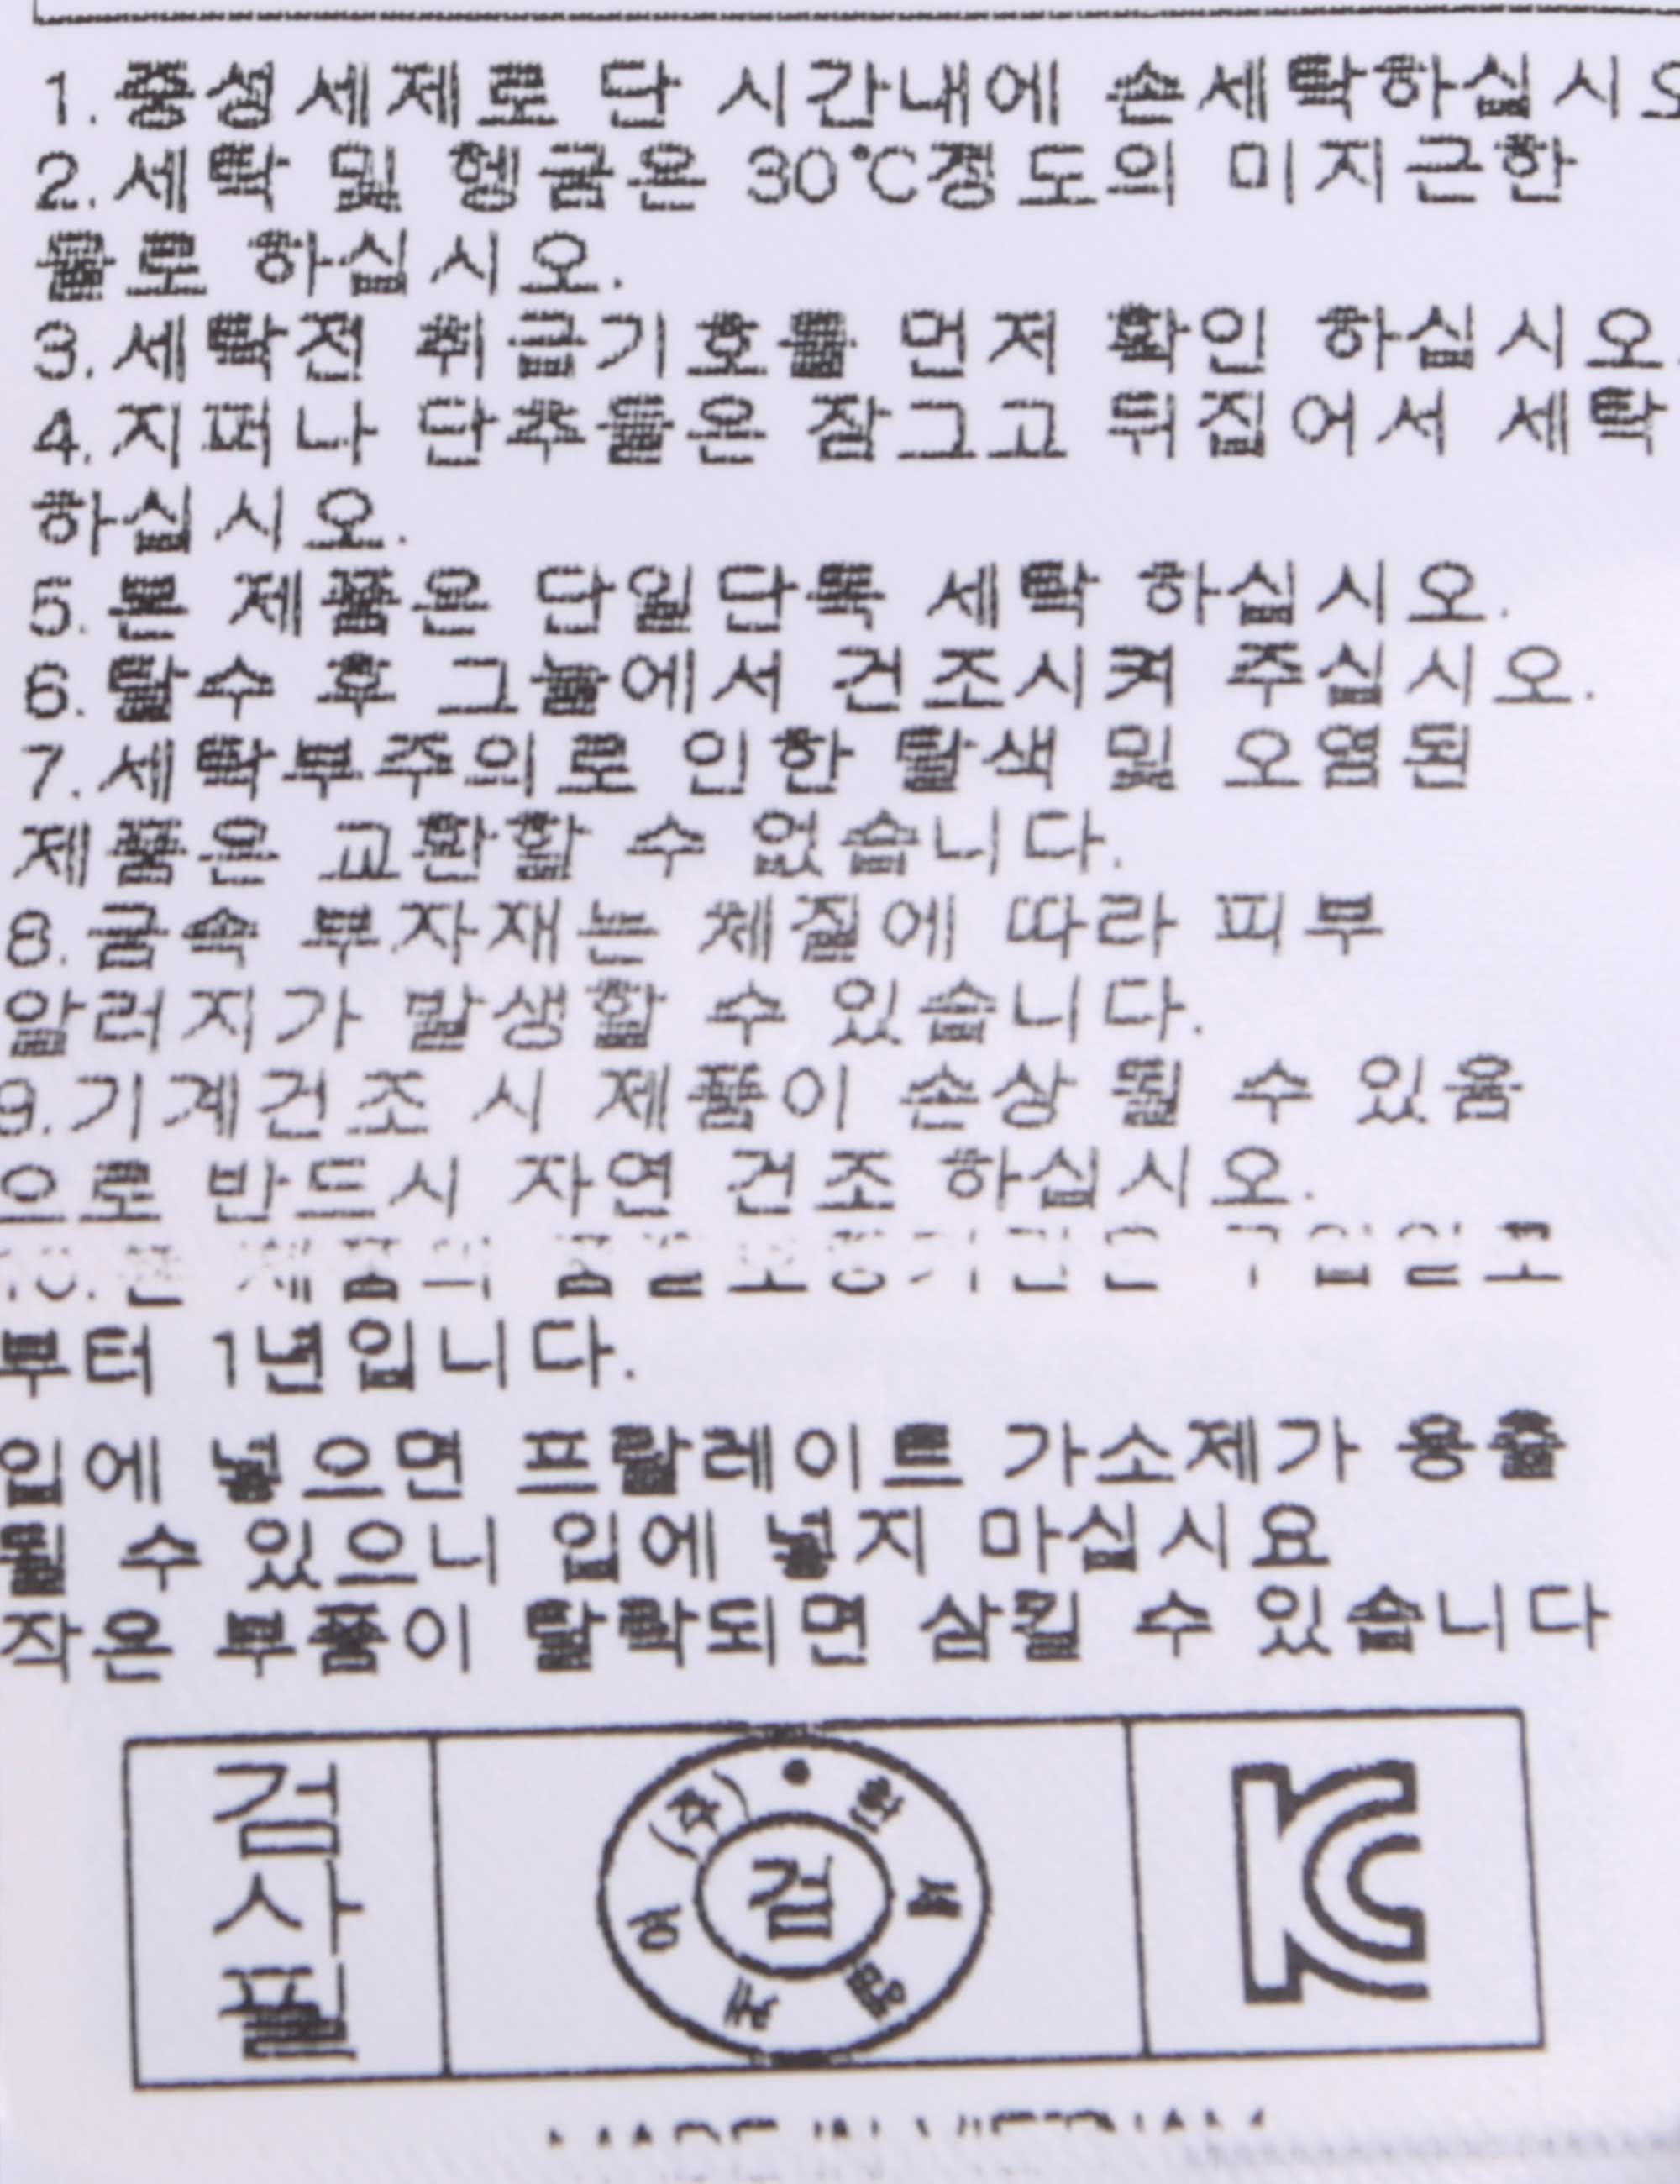 1.중성세제로 단 시간내에 손세탁하십시오
2.세탁 및 헹굼은 30°C정도의 미지근한
물로 하십시오.
3.세탁전 취급기호를 먼저 확인 하십시오.
4.지퍼나 단추들은 잠그고 뒤집어서 세탁
하십시오.
5.본 제품은 단일단독 세탁 하십시오.
6.탈수 후 그늘에서 건조시켜 주십시오.
7.세탁부주의로 인한 탈색 및 오염된
제품은 교환할 수 없습니다.
8.금속 부자재는 체질에 따라 피부
알러지가 발생할 수 있습니다.
9.기계건조 시 제품이 손상 될 수 있음
으로 반드시 자연 건조 하십시오.
10.본 제품의 품질보증기간은 구입일로
부터 1년입니다.
입에 넣으면 프탈레이트 가소제가 용출
될 수 있으니 입에 넣지 마십시요
작은 부품이 탈락되면 삼킬 수 있습니다
검사필
(주)한세엠케이
검
KC